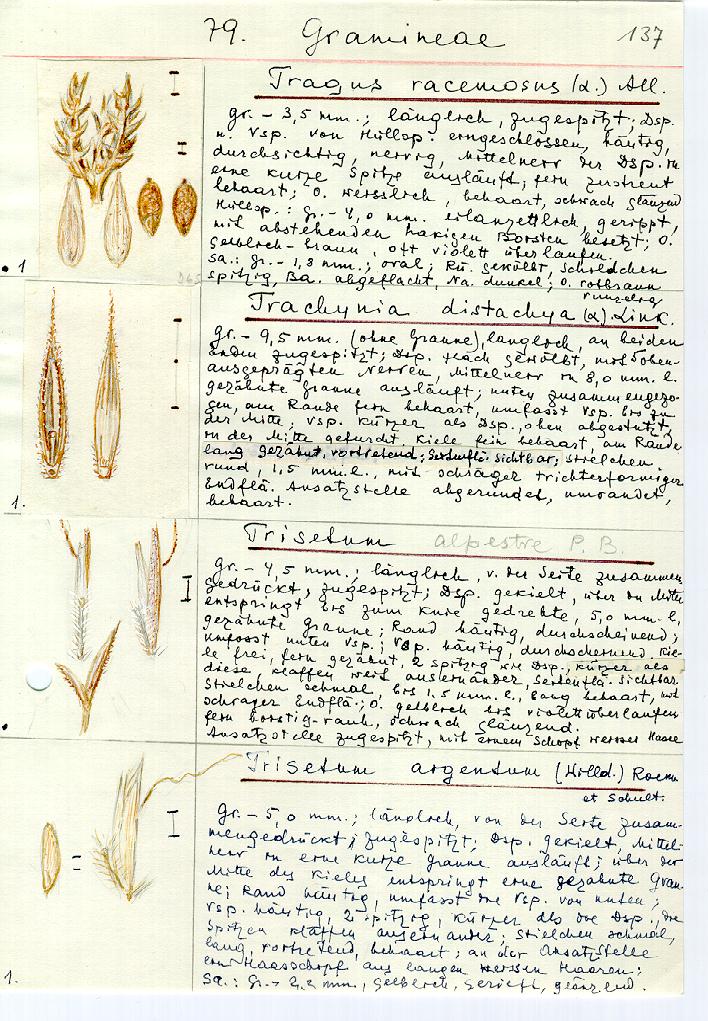 79. Gramineae 137
Tragus racemosus (L.) All.
gr. – 3,5 mm.; länglich, zugespitzt; Dsp.
u. Vsp. von Hüllsp. eingeschlossen, häutig,
durchsichtig, nervig, Mittelnerv der Dsp. in
eine kurze Spitze ausläuft; fein zustreut
behaart; O. weisslich, behaart, schwach glänzend
Hüllsp.: gr. – 4,0 mm. eilanzettlich, gerippt,
mit abstehenden hakigen Borsten besetzt; O.
gelblich-braun, oft violett überlaufen.
Sa.: gr. – 1,3 mm.; oval; Rü. gewölbt, Schildchen
spitzig, Ba. abgeflacht, Na. dunkel; O. rotbraun
runzelig
. 1
Trachynia distachya (L) Link.
gr. – 9,5 mm. (ohne Granne), länglich, an beiden
Enden zugespitzt; Dsp. flach gewölbt, mit oben-
ausgeprägten Nerven, Mittelnerv in 8,0 mm. l.
gezähnte Granne ausläuft; unten zusammengezo-
gen, am Rande fein behaart, umfasst Vsp. bis zu
der Mitte; Vsp. kürzer als Dsp., oben abgestutzt,
in der Mitte gefurcht, Kiele fein behaart, am Rande
lang gezähnt, vortretend; Seitenflä. sichtbar; Stielchen
rund, 1,5 mm. l., mit schräger trichterförmiger
Endflä. Ansatzstelle abgerundet, umrandet,
behaart.
1.
Trisetum alpestre P. B.
gr. – 4,5 mm.; länglich, v. der Seite zusammen
gedrückt, zugespitzt; Dsp. gekielt, über du Mitte
entspringt bis zum Knie gedrehte, 5,0 mm. l,
gezähnte Granne; Rand häutig, durchscheinend;
umfasst unten Vsp.; Vsp. häutig, durchscheinend. Kie-
le frei, fein gezähnt, 2 spitzig wie Dsp. kürzer als
diese, klaffen weit auseinander, Seitenflä. sichtbar.
Stielchen schmal, bis 1,5 mm. l., lang behaart, mit
schräger Endflä.; O. gelblich bis violett überlaufen
fein borstig-rauh, schwach glänzend.
Ansatzstelle zugespitzt, mit einem Schopf weisser Haare
Trisetum argentum (Willd.) Roem
et Schult.
gr. – 5,0 mm.; länglich, von der Seite zusam-
mengedrückt; zugespitzt; Dsp. gekielt, Mittel-
nerv in eine kurze Granne ausläuft; über der
Mitte des Kieles entspringt eine gezähnte Gran-
ne; Rand häutig, umfasst die Vsp. von unten;
Vsp. häutig, 2 spitzig, kürzer als die Dsp., die
Spitzen klaffen auseinander; Stielchen schmal,
lang, vortretend, behaart; an der Ansatzstelle
ein Haarschopf aus langen weissen Haaren;
Sa.: gr. – 2,2 mm, gelblich, gerieft, glänzend.
1.